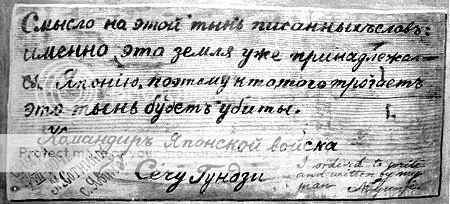 Смысло на этой тынь писанныхъ словъ:
именно эта земля уже принадлежала
сь Японію, поэтому кто этого трогветъ
это тынь будетъ убиты.
Командиръ Японской войска
Сечу Гундзи
I orderd to write
and written by my
man